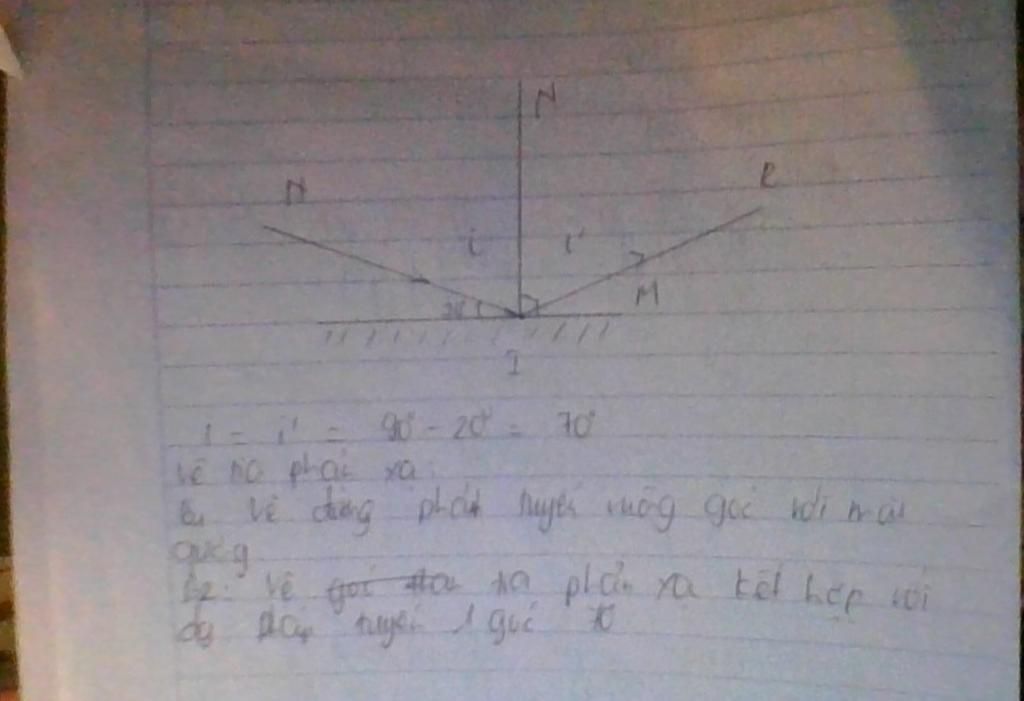 N
N
R
i
i'
M
20°
I
i = i' = 90° - 20° = 70°
Vẽ tia phản xạ:
B1: Vẽ đường pháp tuyến vuông góc với mặt
gương
B2: Vẽ tia phản xạ kết hợp với
pháp tuyến 1 góc 70°